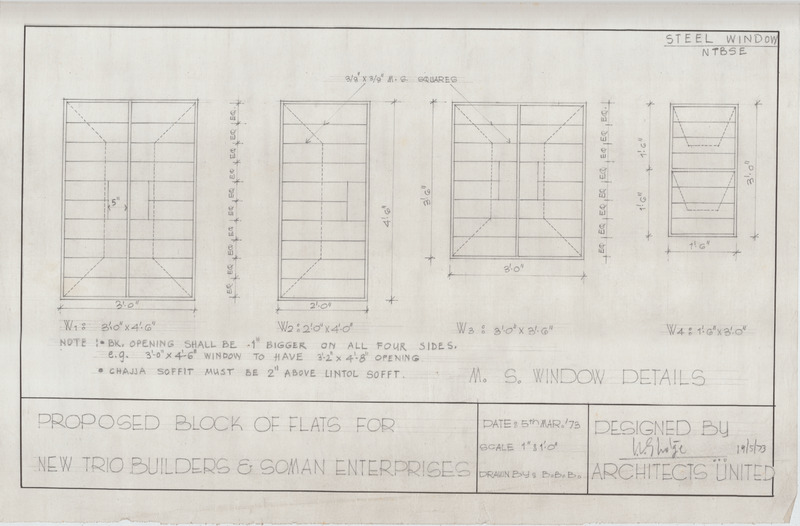 STEEL WINDOW
NTBSE
3/8" x 3/8" M.S. SQUARES
EQ. EQ. EQ. EQ. EQ. EQ. EQ. EQ. EQ. EQ.
EQ. EQ. EQ. EQ. EQ. EQ. EQ. EQ.
5"
4'.6"
3'.6"
1'.6"
1'.6"
3'.0"
3'.0"
2'.0"
3'.0"
1'.6"
W1 : 3'.0" x 4'.6"
W2 : 2'.0" x 4'.0"
W3 : 3'.0" x 3'.6"
W4 : 1'.6" x 3'.0"
NOTE : • BK. OPENING SHALL BE .1" BIGGER ON ALL FOUR SIDES.
e.g. 3'.0" x 4'.6" WINDOW TO HAVE 3'.2" x 4'.8" OPENING
• CHAJJA SOFFIT MUST BE 2" ABOVE LINTOL SOFFT.
M. S. WINDOW DETAILS
PROPOSED BLOCK OF FLATS FOR
NEW TRIO BUILDERS & SOMAN ENTERPRISES
DATE : 5TH MAR.'73
SCALE 1" : 1'.0"
DRAWN
DESIGNED BY
19/5/73
ARCHITECTS UNITED